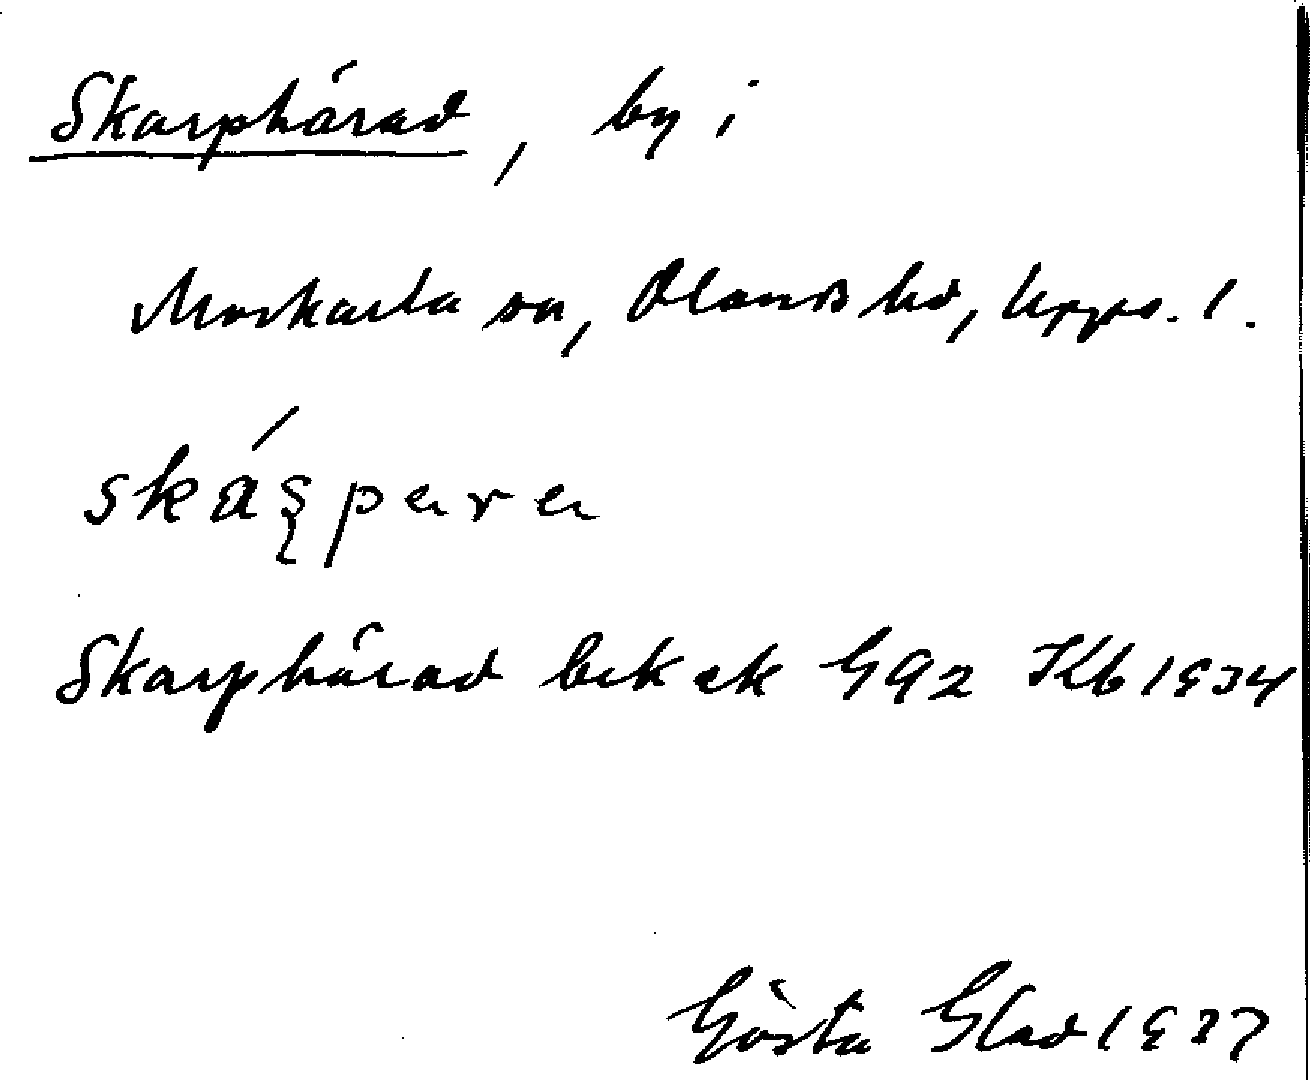 Skarphärad, by i
Morkarla sn, Olands hd, Upps. l.
Skarphärad bek ek G92 Kb 1934
Gösta Glad 1937